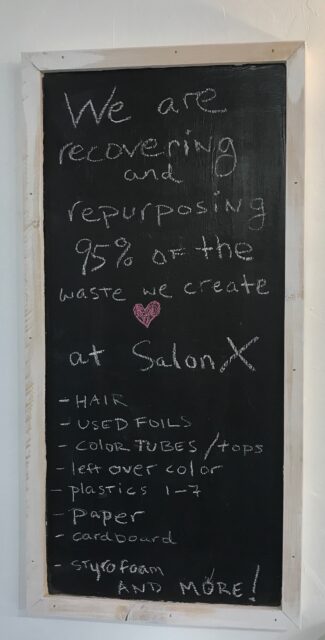 We are
recovering
and
repurposing
95% of the
waste we create
at Salon X
- HAIR
- USED FOILS
- COLOR TUBES / tops
- left over color
- plastics 1-7
- Paper
- cardboard
- styrofoam
AND MORE!